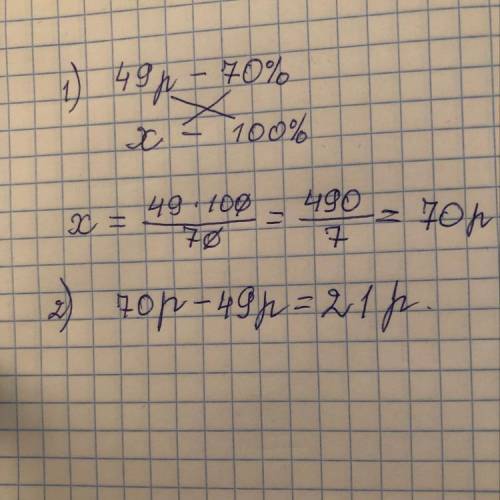 1) 49р - 70%
x - 100%
x = 49 · 100 / 70 = 490 / 7 = 70р
2) 70р - 49р = 21р.